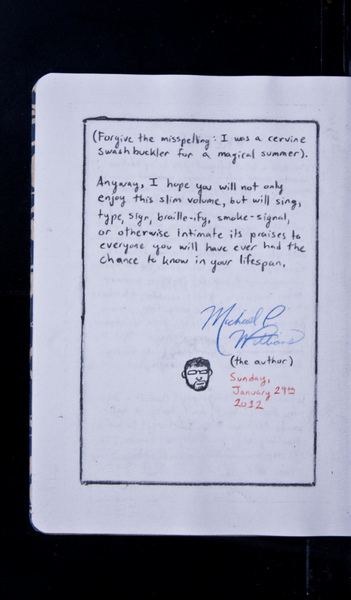 (Forgive the misspelling: I was a cervine
swashbuckler for a magical summer).
Anyway, I hope you will not only
enjoy this slim volume, but will sing,
type, sign, braille-ify, smoke-signal,
or otherwise intimate its praises to
everyone you will have ever had the
chance to know in your lifespan.
Michael P
Williams
(the author)
Sunday,
January 29th
2012